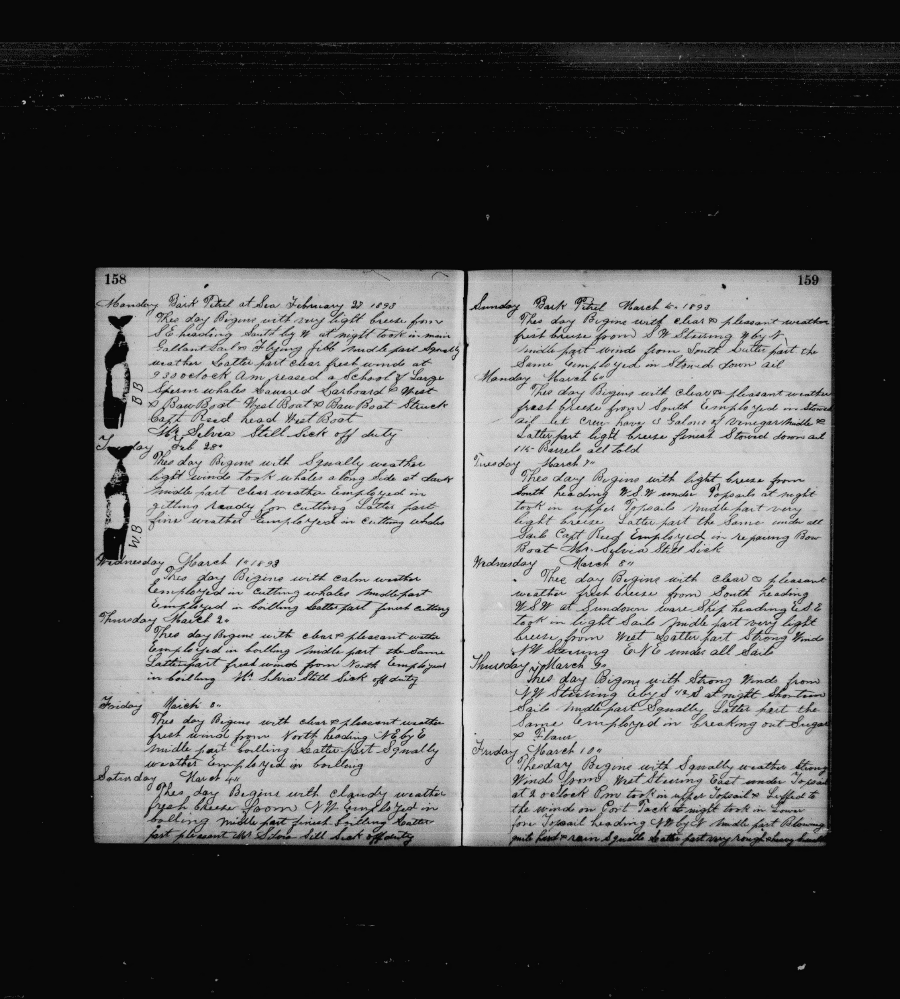 158
Monday Bark Petrel at Sea February 27 1893
This day Begins with very light breeze from
S E heading South by W at night took in main
Gallant Sail & Flying Jibb middle part Squally
weather Latter part clear fresh winds at
9 30 oclock Am reased a School of Large
Sperm whales Lowered Larboard & West
& Bow Boat West Boat & Bow Boat Struck
Capt Reed head West Boat
B B
Mr Selvia Still Sick off duty
Feb 28"
This day Begins with Squally weather
light winds took whales along Side at dark
middle part clear weather Employed in
gitting ready for Cutting Latter part
fine weather Employed in Cutting whales
W.B
Wednesday March 1" 1893
This day Begins with calm weather
Employed in Cutting whales middle part
Employed in boilling Latter part finish cutting
Thursday March 2"
This day Begins with clear & pleasant wether
Employed in boilling middle part the Same
Latter part fresh winds from North Employed
in boilling Mr Selvia Still Sick off duty
Friday March 3"
This day Begins with clear & pleasant weather
fresh winds from North heading N E by E
middle part boilling Latter part Squally
weather Employed in boilling
Saturday March 4"
This day Begins with cloudy weather
fresh breeze from N W Employed in
boilling middle part finish boilling Latter
part pleasent Mr Selvia Still Sick off duty
159
Sunday Bark Petrel March 5" 1893
This day Begins with clear & pleasant weather
fresh breeze from S W Stearing W by N
middle part winds from South Latter part the
Same Employed in Stowed down oil
Monday March 6"
This day Begins with clear & pleasant weather
fresh breeze from South Employed in Stowed
oil let crew have 3 Galons of Vinegar middle &
Latter part light breeze finish Stowed down oil
115 Barrels all told
Tuesday March 7"
This day Begins with light breeze from
South heading W S W under Topsails at night
took in upper Topsails middle part very
light breeze Latter part the Same under all
Sails Capt Reed Employed in repairing Bow
Boat Mr. Selvia Still Sick
Wednesday March 8"
This day Begins with clear & pleasant
weather fresh breeze from South heading
W S W at Sundown ware Ship heading E S E
took in light Sails middle part very light
breeze from West Latter part Strong Winds
N W Stearing E N E under all Sails
Thursday March 9"
This day Begins with Strong Winds from
N W Stearing E by S 1/2 S at night Shorten
Sails middle part Squally Latter part the
Same Employed in breaking out Sugar
& Flaur
Friday March 10"
This day Begins with Squally weather Strong
Winds from West Stearing East under Topsail
at 2 oclock Pm took in upper Topsail & Luffed to
the wind on Port Tack at night took in Lower
fore Topsail heading N W by N middle part Blowing
quite hard & rain Squalls Latter part very rough & heavy